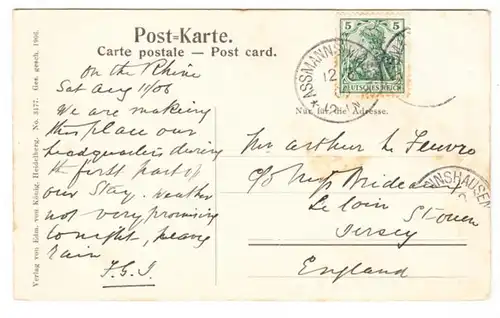 Post-Karte.
Carte postale — Post card.
Nur für die Adresse.
Verlag von Edm. von König, Heidelberg. No. 3177. Ges. gesch. 1906.
5 5
DEUTSCHES REICH
ASSMANNSHAUSEN
12
On the Rhine
Sat Aug 11/06
We are making
this place our
headquarters during
the first part of
our stay. Weather
not very promising
tonight, heavy
rain
F.G.J.
Mr Arthur Le Feuvre
c/o Mrs Bideau
Le Coin
St Ouen
Jersey
England
NNSHAUSEN